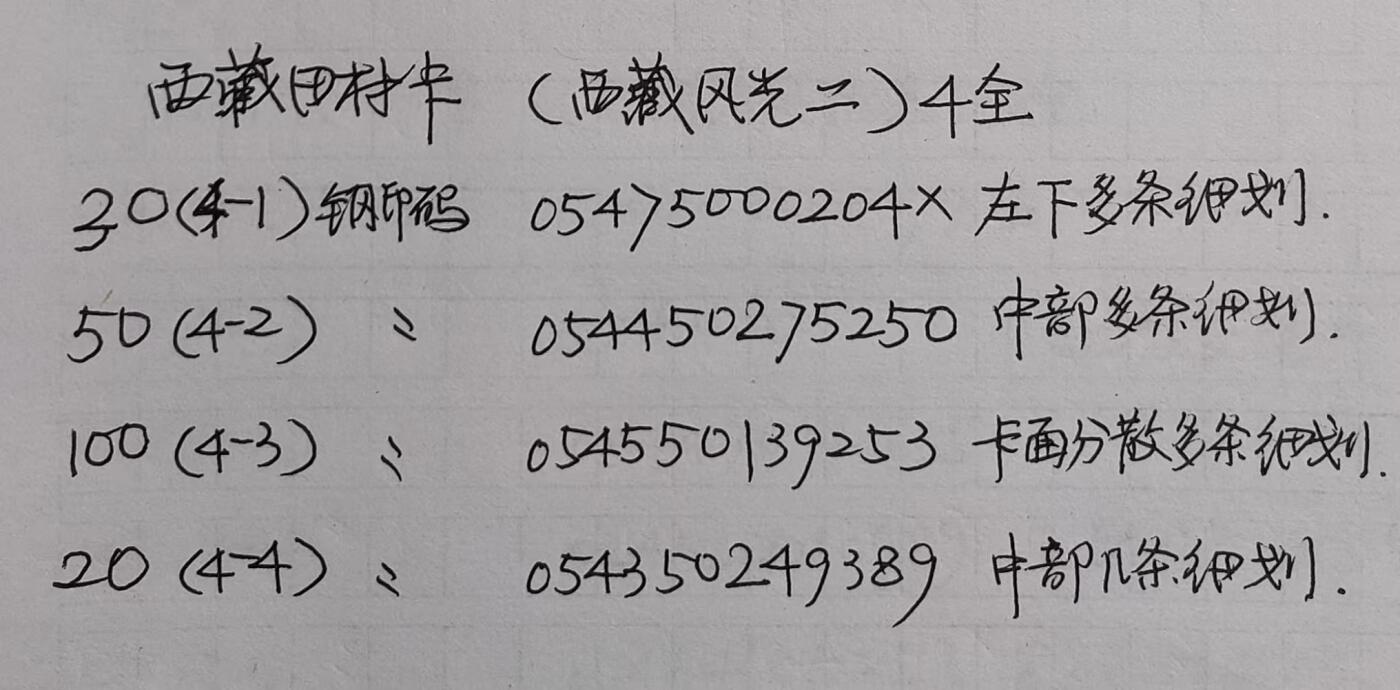 西藏田村卡 (西藏风光二)4全
30(4-1)钢印码 05475000204X 左下多条细划.
50(4-2) 〃 054450275250 中部多条细划.
100(4-3) 〃 054550139253 卡面分散多条细划.
20(4-4) 〃 054350249389 中部几条细划.